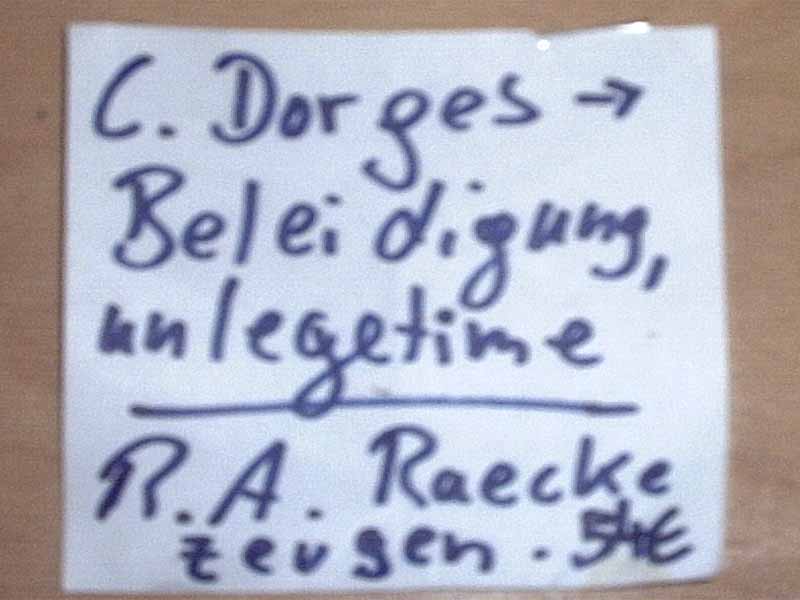 C. Dorges →
Beleidigung,
unlegetime
R.A. Raecke
zeugen. 54€